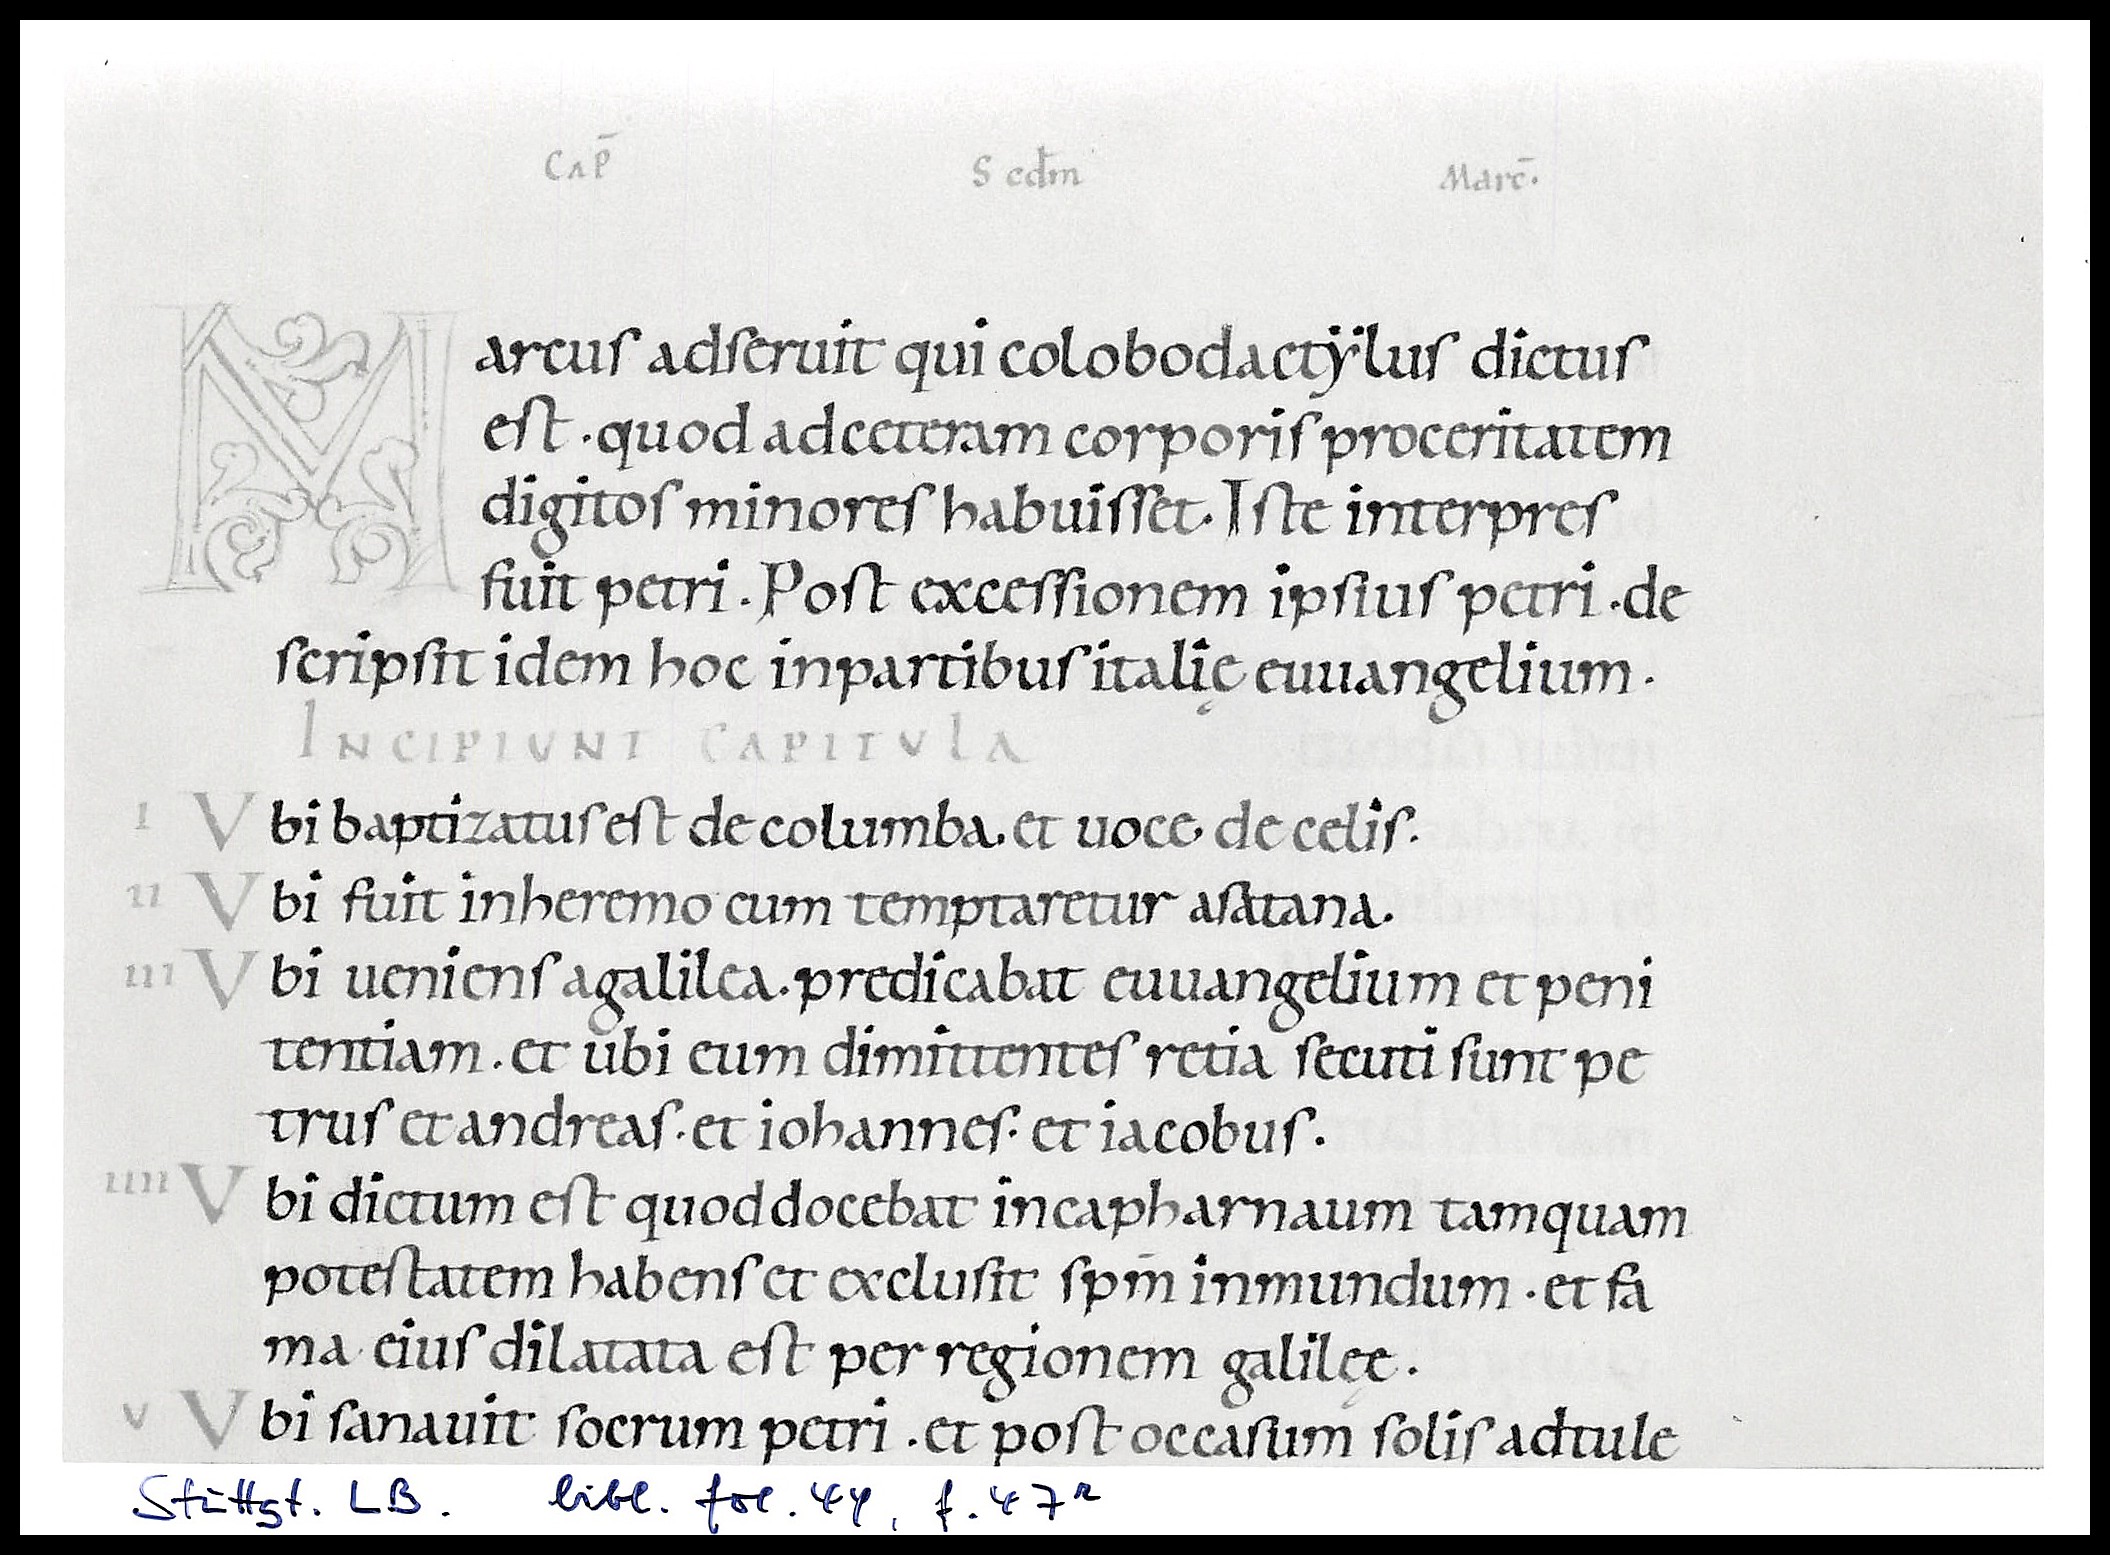 CAP̄ Scdm̄ Marc̄.
Marcus adseruit qui colobodactẏlus dictus
est · quod adceteram corporis proceritatem
digitos minores habuisset. Iste interpres
fuit petri. Post excessionem ipsius petri · de
scripsit idem hoc inpartibus italię euuangelium.
INCIPIUNT CAPITULA
I Vbi baptizatus est de columba. et uoce de celis.
II Vbi fuit inheremo cum temptaretur asatana.
III Vbi ueniens agalilea. predicabat euuangelium et peni
tentiam. et ubi eum dimittentes retia secuti sunt pe
trus et andreas. et iohannes. et iacobus.
IIII Vbi dictum est quod docebat incapharnaum tamquam
potestatem habens et exclusit spm̄ inmundum. et fa
ma eius dilatata est per regionem galilęe.
V Vbi sanauit socrum petri. et post occasum solis adtule
Stuttgt. LB. bibl. fol. 44, f. 47r